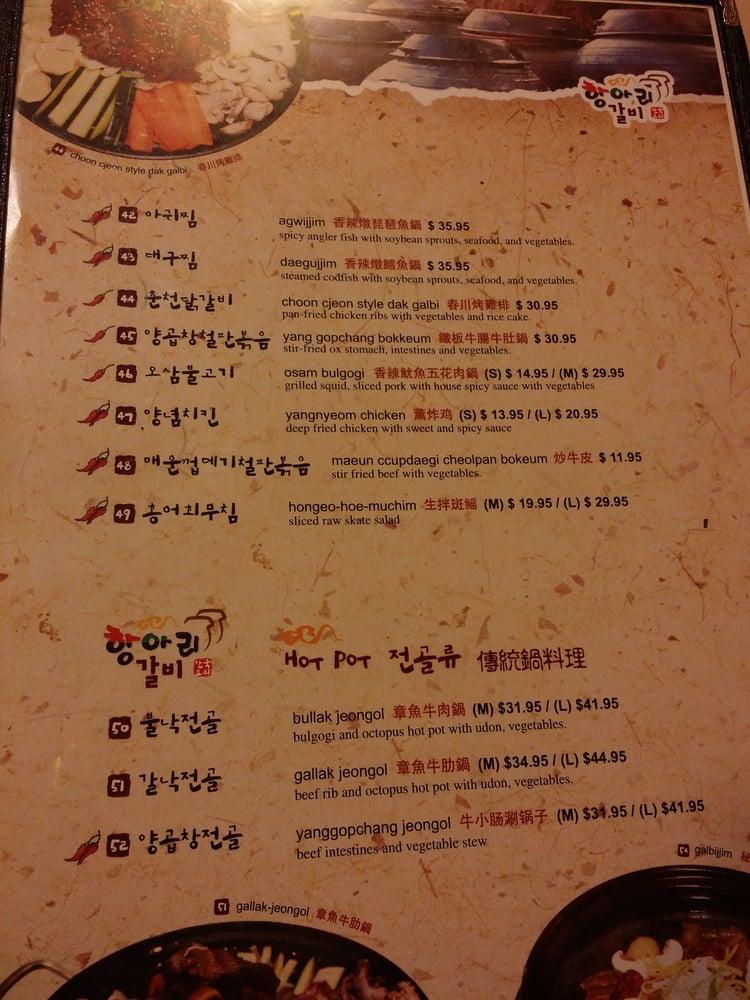 항아리
갈비
44 choon cjeon style dak galbi 春川烤雞排
42 아귀찜 agwijjim 香辣燉琵琶魚鍋 $ 35.95
spicy angler fish with soybean sprouts, seafood, and vegetables.
43 대구찜 daegujjim 香辣燉鱈魚鍋 $ 35.95
steamed codfish with soybean sprouts, seafood, and vegetables.
44 춘천닭갈비 choon cjeon style dak galbi 春川烤雞排 $ 30.95
pan-fried chicken ribs with vegetables and rice cake.
45 양곱창철판볶음 yang gopchang bokkeum 鐵板牛腸牛肚鍋 $ 30.95
stir-fried ox stomach, intestines and vegetables.
46 오삼불고기 osam bulgogi 香辣魷魚五花肉鍋 (S) $ 14.95 / (M) $ 29.95
grilled squid, sliced pork with house spicy sauce with vegetables
47 양념치킨 yangnyeom chicken 薰炸鸡 (S) $ 13.95 / (L) $ 20.95
deep fried chicken with sweet and spicy sauce
48 매운껍데기철판볶음 maeun ccupdaegi cheolpan bokeum 炒牛皮 $ 11.95
stir fried beef with vegetables.
49 홍어회무침 hongeo-hoe-muchim 生拌斑鰩 (M) $ 19.95 / (L) $ 29.95
sliced raw skate salad
항아리
갈비
HOT POT 전골류 傳統鍋料理
50 불낙전골 bullak jeongol 章魚牛肉鍋 (M) $31.95 / (L) $41.95
bulgogi and octopus hot pot with udon, vegetables.
51 갈낙전골 gallak jeongol 章魚牛肋鍋 (M) $34.95 / (L) $44.95
beef rib and octopus hot pot with udon, vegetables.
52 양곱창전골 yanggopchang jeongol 牛小肠涮锅子 (M) $31.95 / (L) $41.95
beef intestines and vegetable stew
galbijjim
51 gallak-jeongol 章魚牛肋鍋